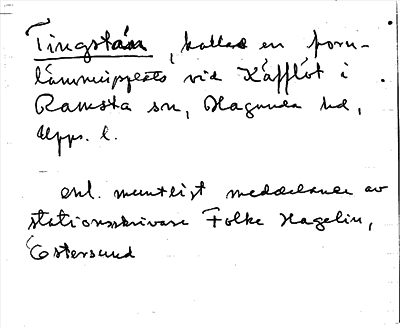 Tingstån, kallas en forn-
lämningsplats vid Käfflöt i
Ramsta sn, Hagunda hd,
Upps. l.
enl. muntligt meddelande av
stationsskrivare Folke Hagelin,
Östersund